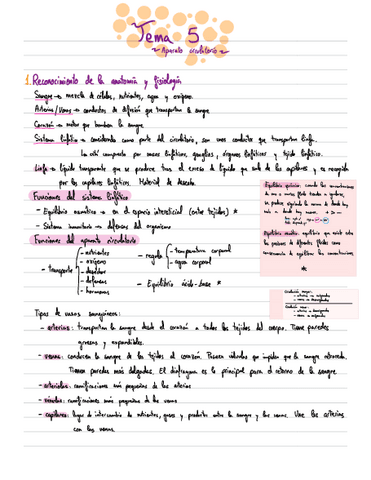 Tema 5
~ Aparato circulatorio ~
1. Reconocimiento de la anatomía y fisiología
Sangre → mezcla de células, nutrientes, agua y oxígeno.
Arterias / Venas → conductos de difusión que transportan la sangre
Corazón → motor que bombea la sangre.
Sistema linfático → considerado como parte del circulatorio, son unos conductos que transportan linfa.
La cité compuesta por vasos linfáticos, ganglios, órganos linfáticos y tejido linfático.
Linfa → líquido transparente que se produce tras el exceso de líquido que sale de los capilares y es recogida
por los capilares linfáticos. Material de desecho.
Funciones del sistema linfático
- Equilibrio osmótico → en el espacio intersticial (entre tejidos) *
- Sistema inmunitario → defensas del organismo
Funciones del aparato circulatorio
- transporte
- nutrientes
- oxígeno
- desechos
- defensas
- hormonas
- regula
- temperatura corporal
- agua corporal
- Equilibrio ácido-base *
Equilibrio químico: cuando las concentraciones
Equilibrio osmótico: equilibrio que existe entre
las presiones de diferentes fluidos como
consecuencia de equilibrar las concentraciones
*
Tipos de vasos sanguíneos:
- arterias: transportan la sangre desde el corazón a todos los tejidos del cuerpo. Tiene paredes
gruesas y expandibles.
- venas: conducen la sangre de los tejidos al corazón. Poseen válvulas que impiden que la sangre retroceda.
Tienen paredes más delgadas. El diafragma es la principal para el retorno de la sangre.
- arteriolas: ramificaciones más pequeñas de las arterias
- vénulas: ramificaciones más pequeñas de las venas
- capilares: lugar de intercambio de nutrientes, gases y productos entre la sangre y las venas. Une las arterias
con las venas.